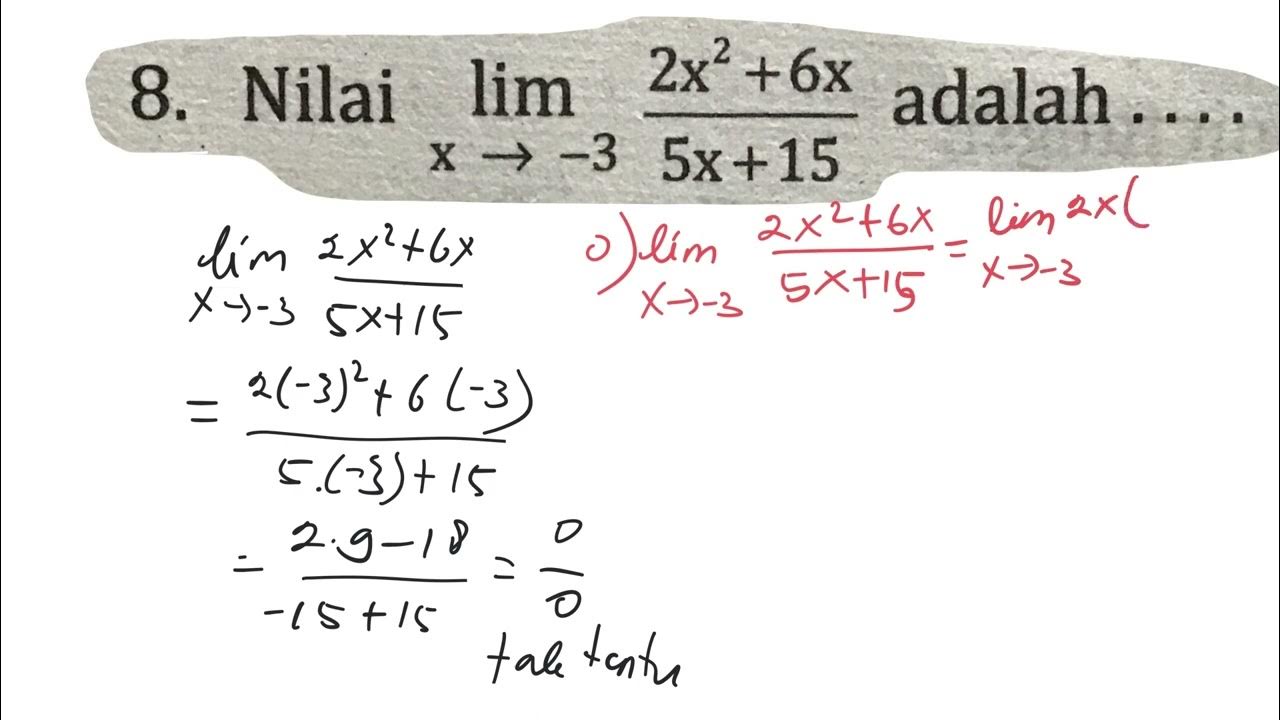 8. Nilai lim x → -3 2x² + 6x / 5x + 15 adalah . . . .
lim x→-3 2x²+6x / 5x+15
= 2(-3)²+ 6 (-3) / 5.(-3)+15
= 2.9-18 / -15+15 = 0 / 0
tak tentu
o) lim x→-3 2x²+6x / 5x+15 = lim x→-3 2x(